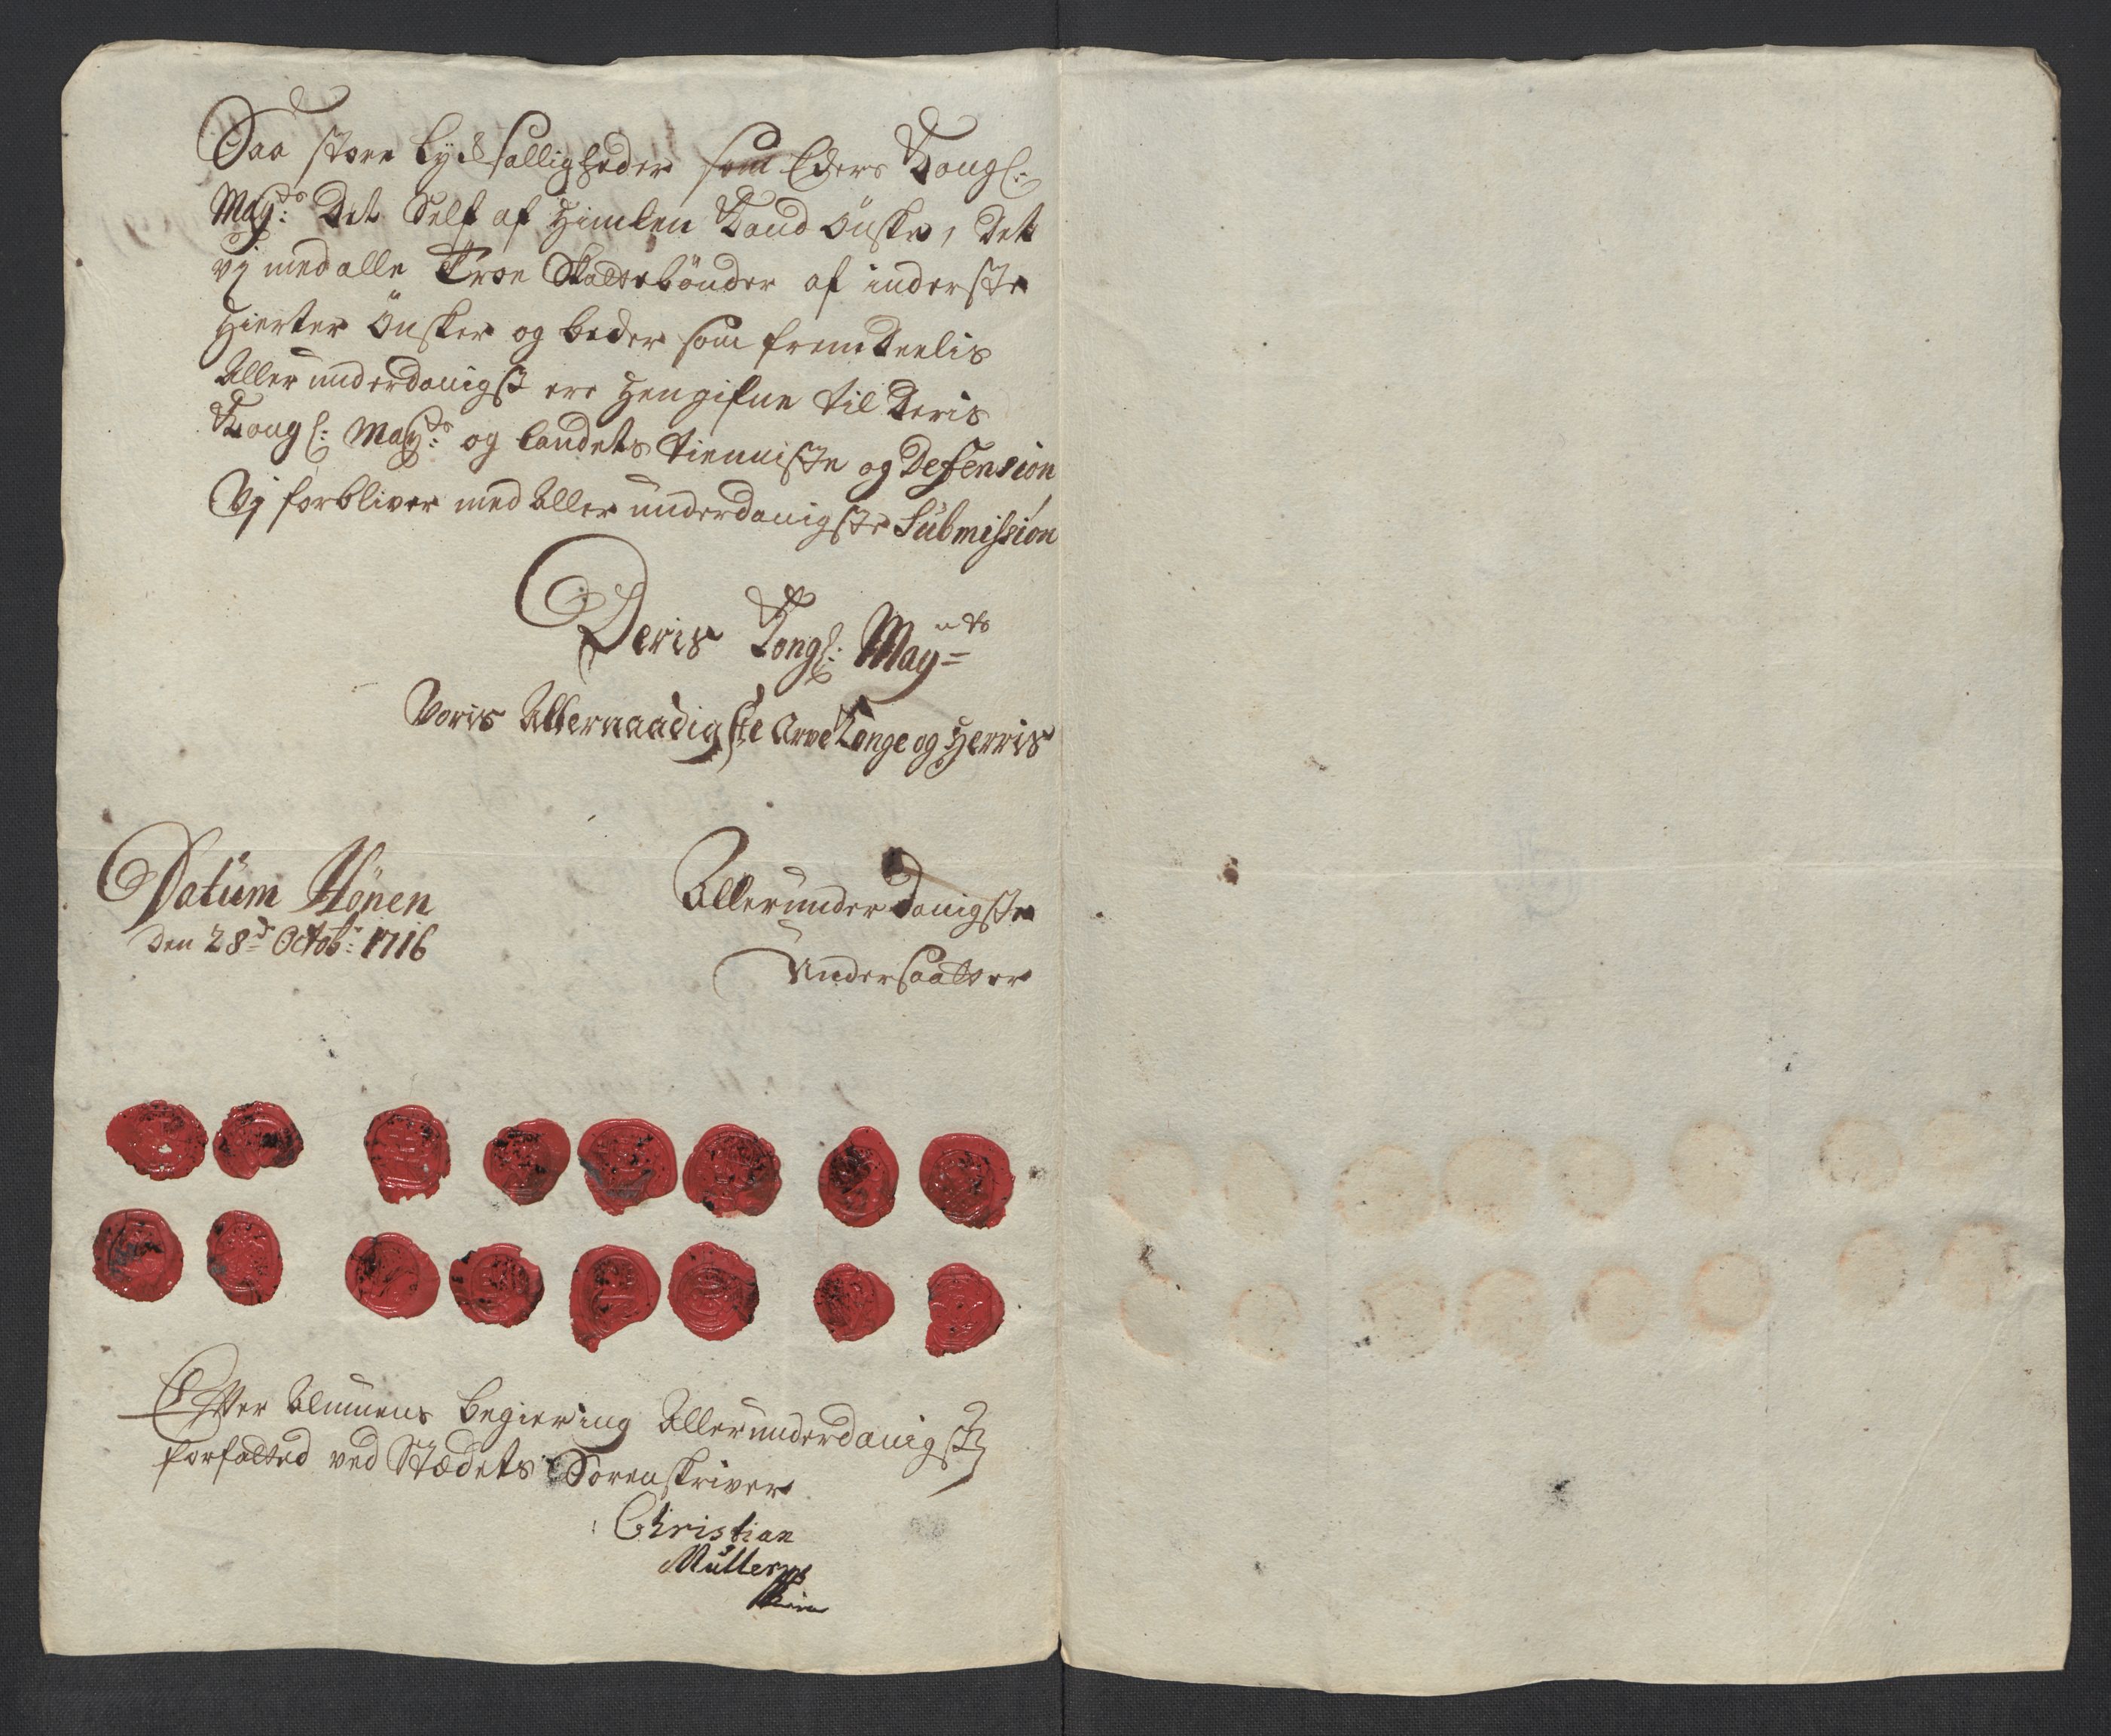 Saa store Lyds salligheder som Eders Kongl:
May:ts Det Self af Himlen Kand Önske, Det
vj med alle Troe Skattebönder af inderste
Hierter Önsker og beder som fremdeelis
Allerunderdanigst ere Hengifne til Deris
Kongl: May:ts og Landets tienniste og Defension
Vj forbliver med Allerunderdanigste Submission
Deris Kongl: Mayts
Voris Allernaadigste Arve Konge og Herris
Datum Hönen
Den 28de Octobr: 1716
Allerunderdanigste
Undersaatter
Efter Almuens Begiering Allerunderdanigst
forfatted ved Stædets Sorenskriver
Christian
Müller